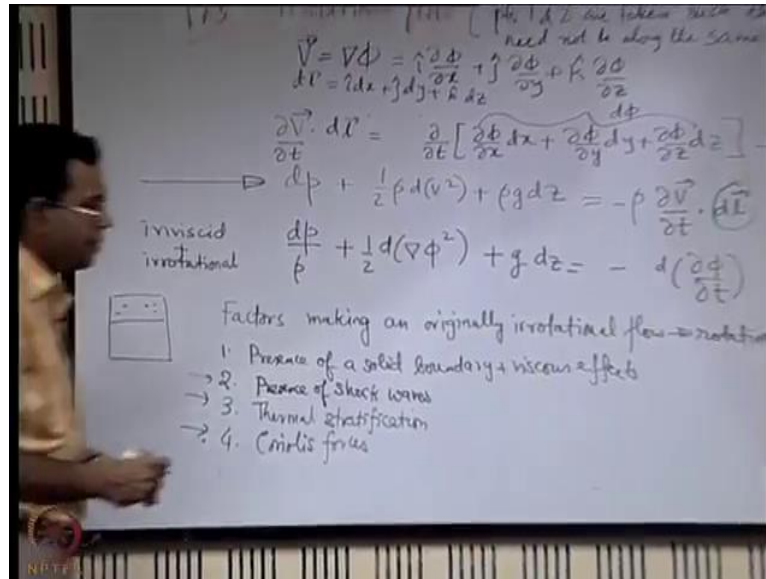 ( pts. 1 & 2 are taken such
need not be along the same
V⃗ = ∇Φ = î ∂Φ/∂x + ĵ ∂Φ/∂y + k̂ ∂Φ/∂z
dl⃗ = îdx + ĵdy + k̂ dz
dΦ
∂V⃗/∂t · dl⃗ = ∂/∂t [∂Φ/∂x dx + ∂Φ/∂y dy + ∂Φ/∂z dz]
dp + 1/2 ρ d(v²) + ρg dz = -ρ ∂V⃗/∂t · dl⃗
inviscid + irrotational
dp/ρ + 1/2 d(∇Φ²) + g dz = - d(∂Φ/∂t)
Factors making an originally irrotational flow → rotation
1. Presence of a solid boundary + viscous effects
→ 2. Presence of shock waves
→ 3. Thermal stratification
→ 4. Coriolis forces
NPTEL